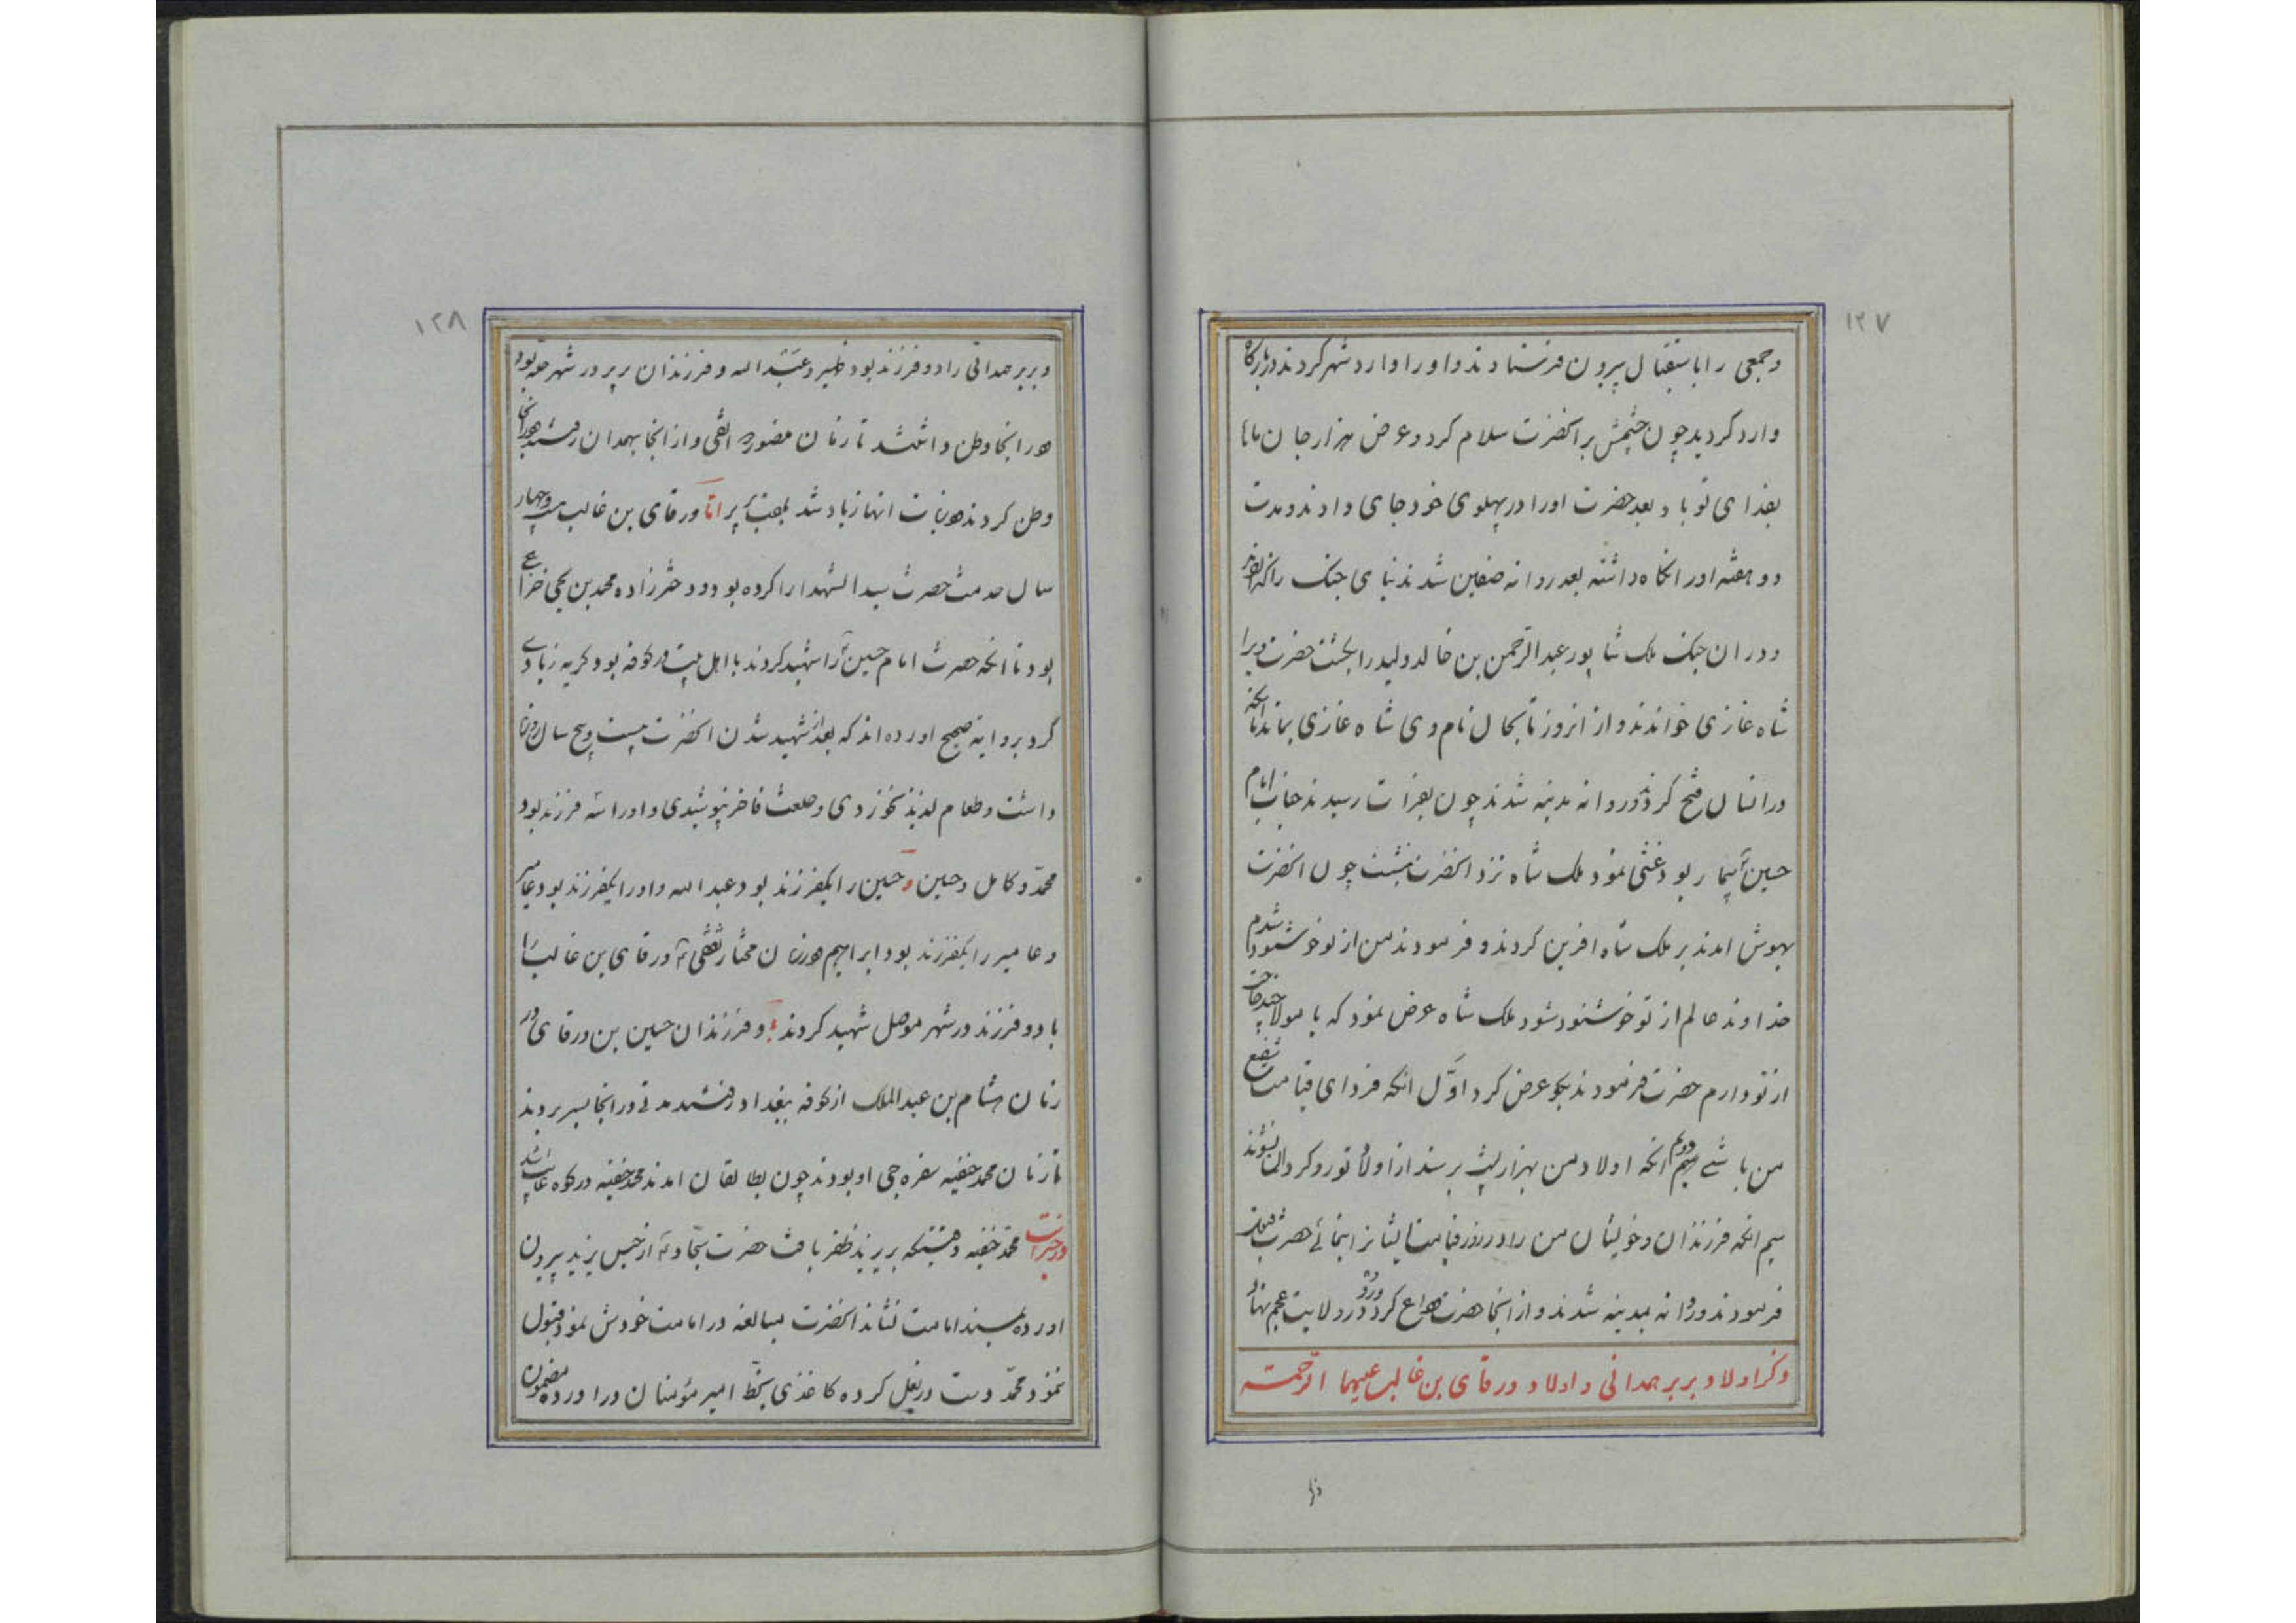 ۱۲۷
و جمعی را باستقبال بیرون فرستادند و او را وارد شهر کردند در بارکاه
وارد کردید چون چشمش بر انحضرت سلام کرد و عرض هزار جان ما
بفدای تو باد بعد حضرت اورا در پهلوی خود جای دادند و مدت
دو هفته اورا نکاه داشته بعد روانه صفین شدند بنای جنک را
و در ان جنک ملک شاپور عبدالرحمن بن خالد ولید را بکشت حضرت ویرا
شاه غازی خواندند و از انروز تا بحال نام وی شاه غازی بماند تا انکه
در انسال فتح کردند و روانه مدینه شدند چون بفرات رسیدند جناب امام
حسین ع بیمار بود غشی نمود ملک شاه نزد انحضرت بنشست چون انحضرت
بهوش امدند بر ملک شاه افرین کردند و فرمودند من از تو خوشنود شدم
خداوند عالم از تو خوشنود شود ملک شاه عرض نمود که یا مولا چند حاجت
از تو دارم حضرت فرمودند بکو عرض کرد اوّل انکه فردای قیامت شفیع
من باشے دویم انکه اولاد من بهزار پشت برسند از اولاد تو رو کردان نشوند
سیم انکه فرزندان و خویشان من را در روز قیامت حضرت قبول
فرمودند و روانه بمدینه شدند و از انجا حضرت وداع کرد و رو در ولایت عجم نهاد
ذکر اولاد بریر همدانی و اولاد ورقای بن غالب علیهما الرّحمته
۱۲۸
و بریر همدانی را دو فرزند بود ظهیر و عبدالله و فرزندان بریر در شهر بود
در انجا وطن داشتند تا زمان و از انجا بهمدان رفتند در انجا
وطن کردند انها زیاد شد بریر امّا ورقای بن غالب بیست و چهار
سال خدمت حضرت سید الشهدا را کرده بود و دخترزاده محمد بن یحیی خزاعی
بود تا انکه حضرت امام حسین ع را شهید کردند با اهل بیت در کوفه بود کریه زیادے
کرد بروایة صحیح اورده اند که بعد از شهید شدن انحضرت بیست و پنج سال
داشت و طعام لذیذ نخوردی و خلعت فاخر نپوشیدی و اورا سه فرزند بود
محمّد و کامل و حسین و حسین را یکفرزند بود عبدالله و اورا یکفرزند بود عامیر
و عامیر را یکفرزند بود ابراهیم در زمان مختار ثقفی ورقای بن غالب را
با دو فرزند در شهر موصل شهید کردند و فرزندان حسین بن ورقای در
زمان هشام بن عبدالملک از کوفه ببغداد رفتند مدتے در انجا بسر بردند
تا زمان محمد حنفیه سفره چی او بودند چون بطالقان امدند محمد حنفیه در کوه غایب شد
در خبر است محمّد حنفیه وقتیکه بر یزید ظفر یافت حضرت سجّاد ع از حبس یزید بیرون
اورده بمسند امامت نشاند انحضرت مبالغه در امامت خودش نمود قبول
ننمود محمّد دست در بغل کرده کاغذی بخطّ امیر مؤمنان در اورده مضمون